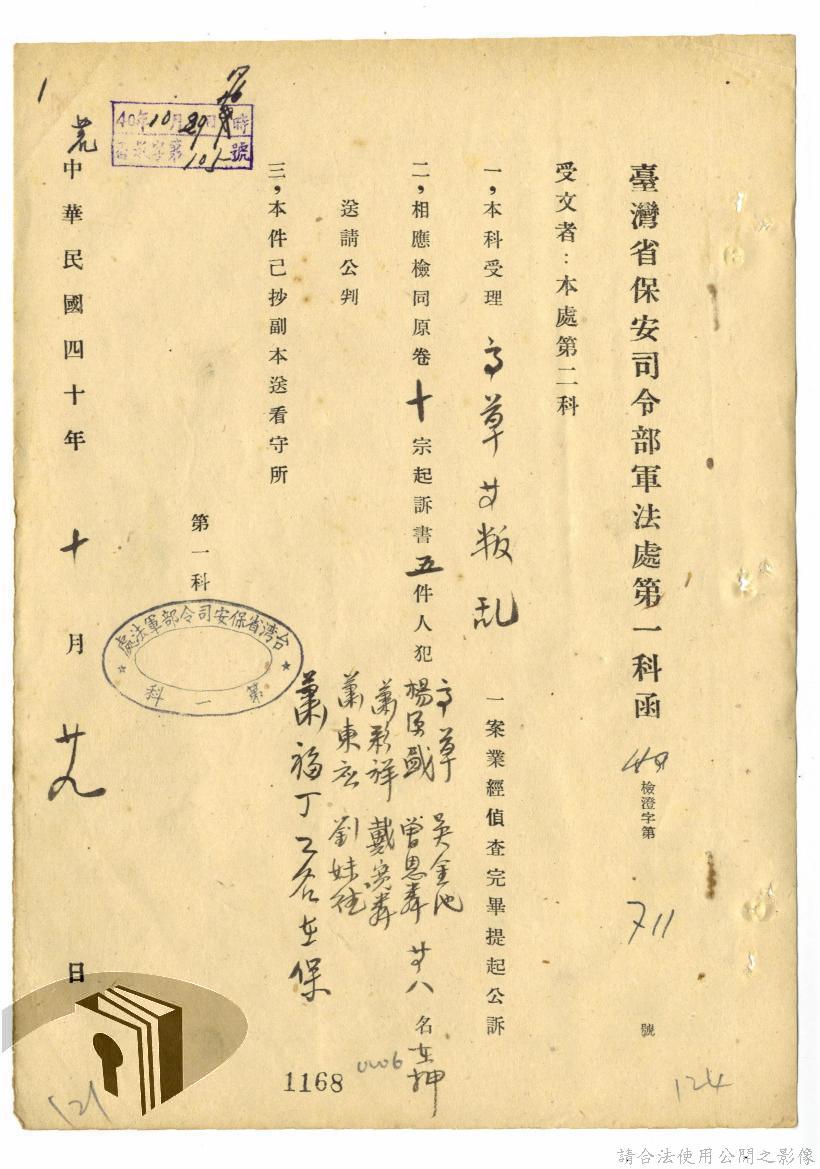 臺灣省保安司令部軍法處第一科函
檢澄字第 711 號
受文者：本處第二科
一，本科受理 高草等叛乱 一案業經偵查完畢提起公訴
二，相應檢同原卷十宗起訴書五件人犯 高草 吳金池
曾恩
戴
蕭東 劉妹
等八名在押
蕭福丁乙名在保
送請公判
三，本件已抄副本送看守所
第一科
台湾省保安司令部軍法處
第一科
中華民國四十年十月廿九日
40年10月29日 時
字第105號
1
1168
0006
121
124
請合法使用公開之影像